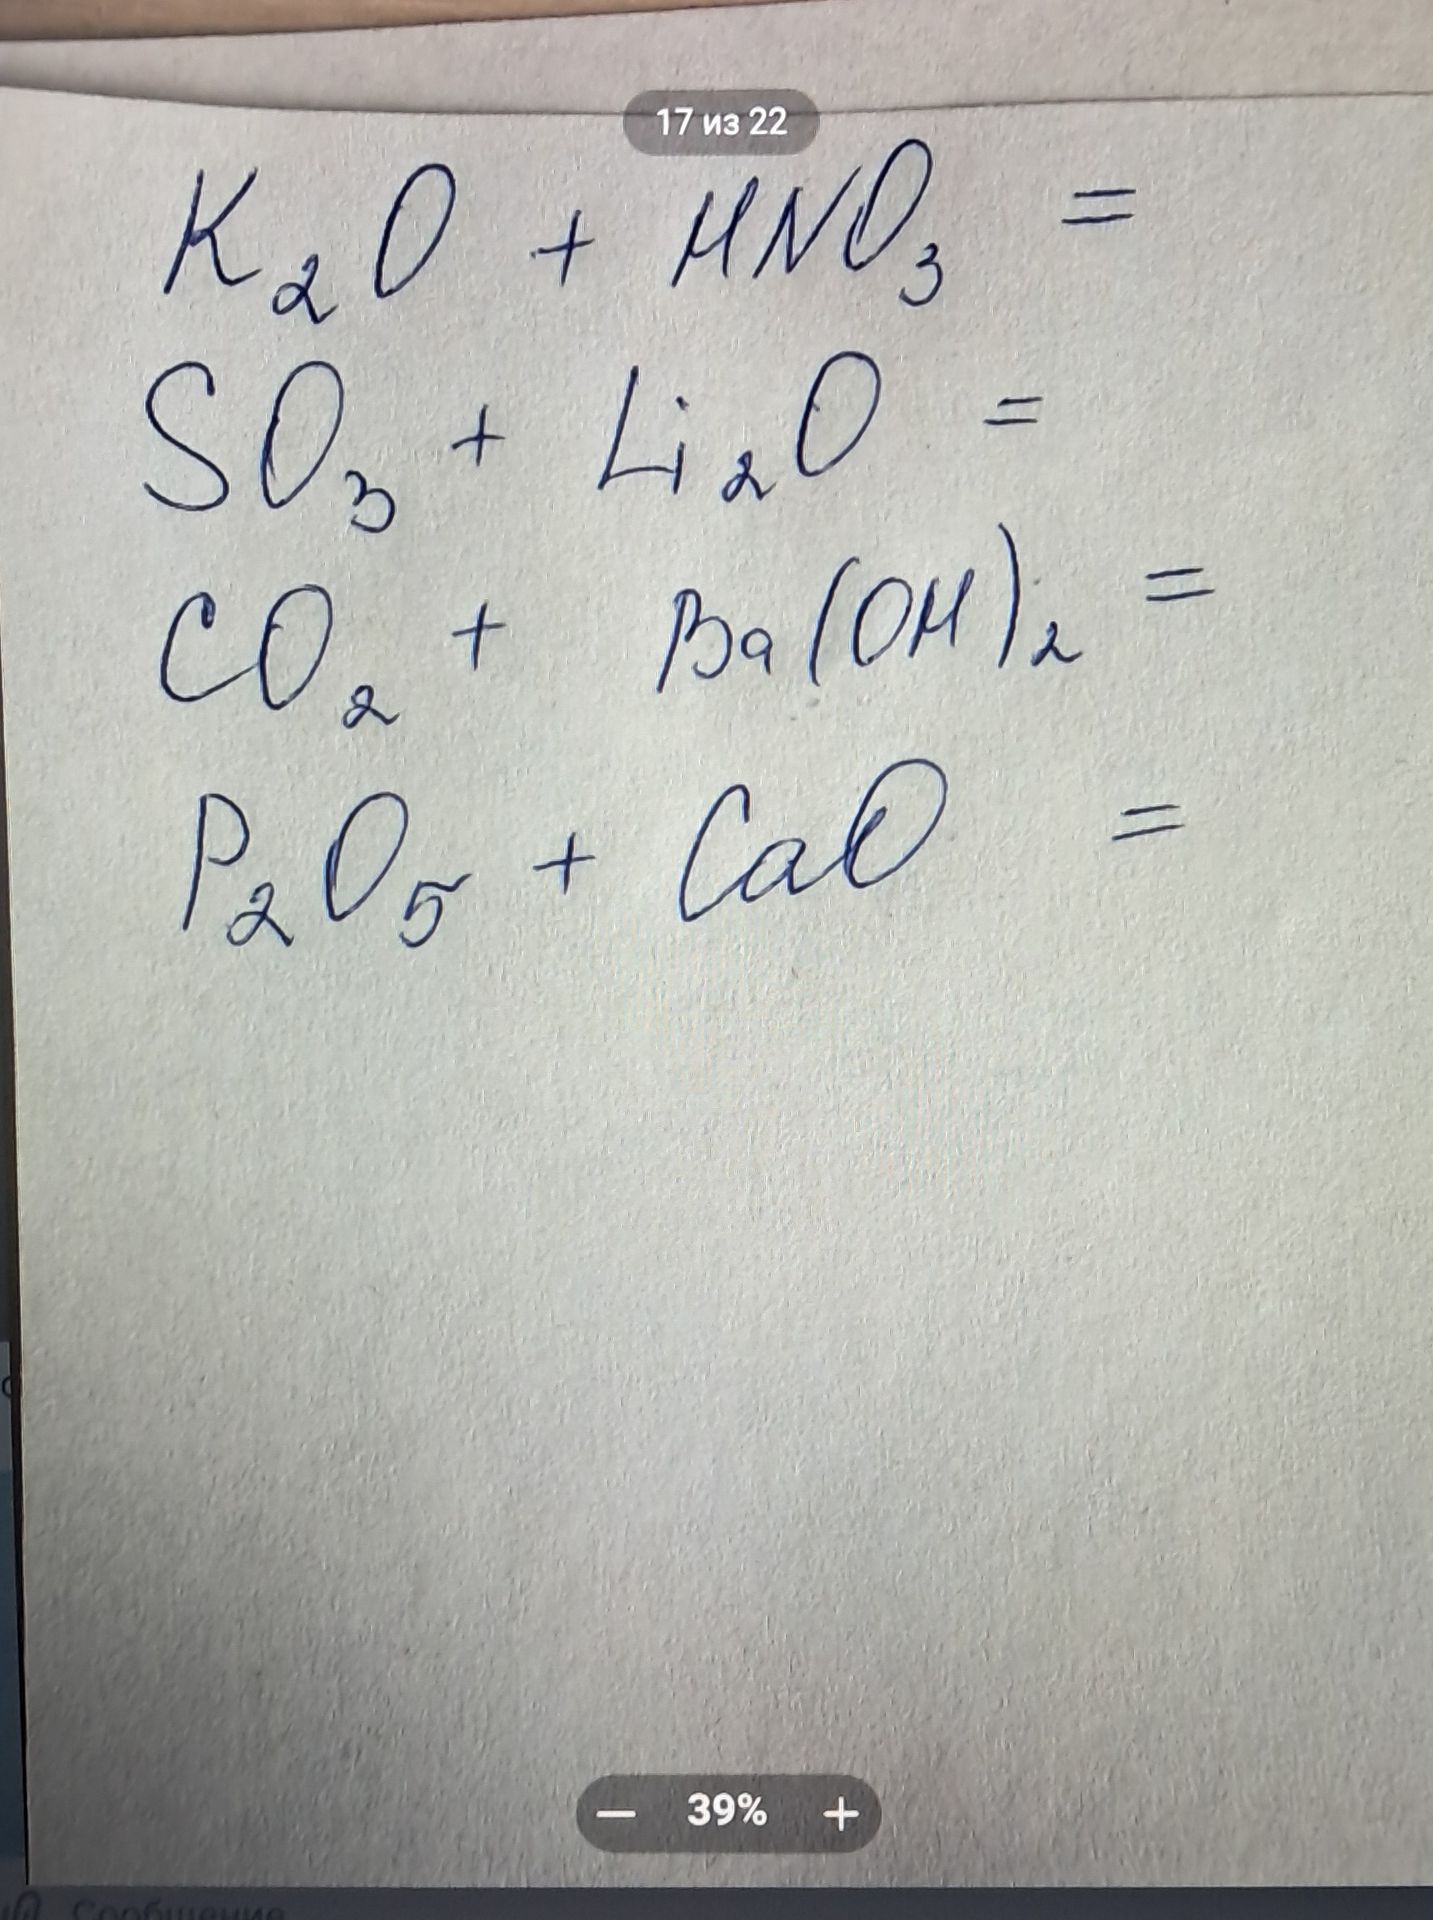 17 из 22
K₂O + HNO₃ =
SO₃ + Li₂O =
CO₂ + Ba(OH)₂ =
P₂O₅ + CaO =
− 39% +
Сообщение